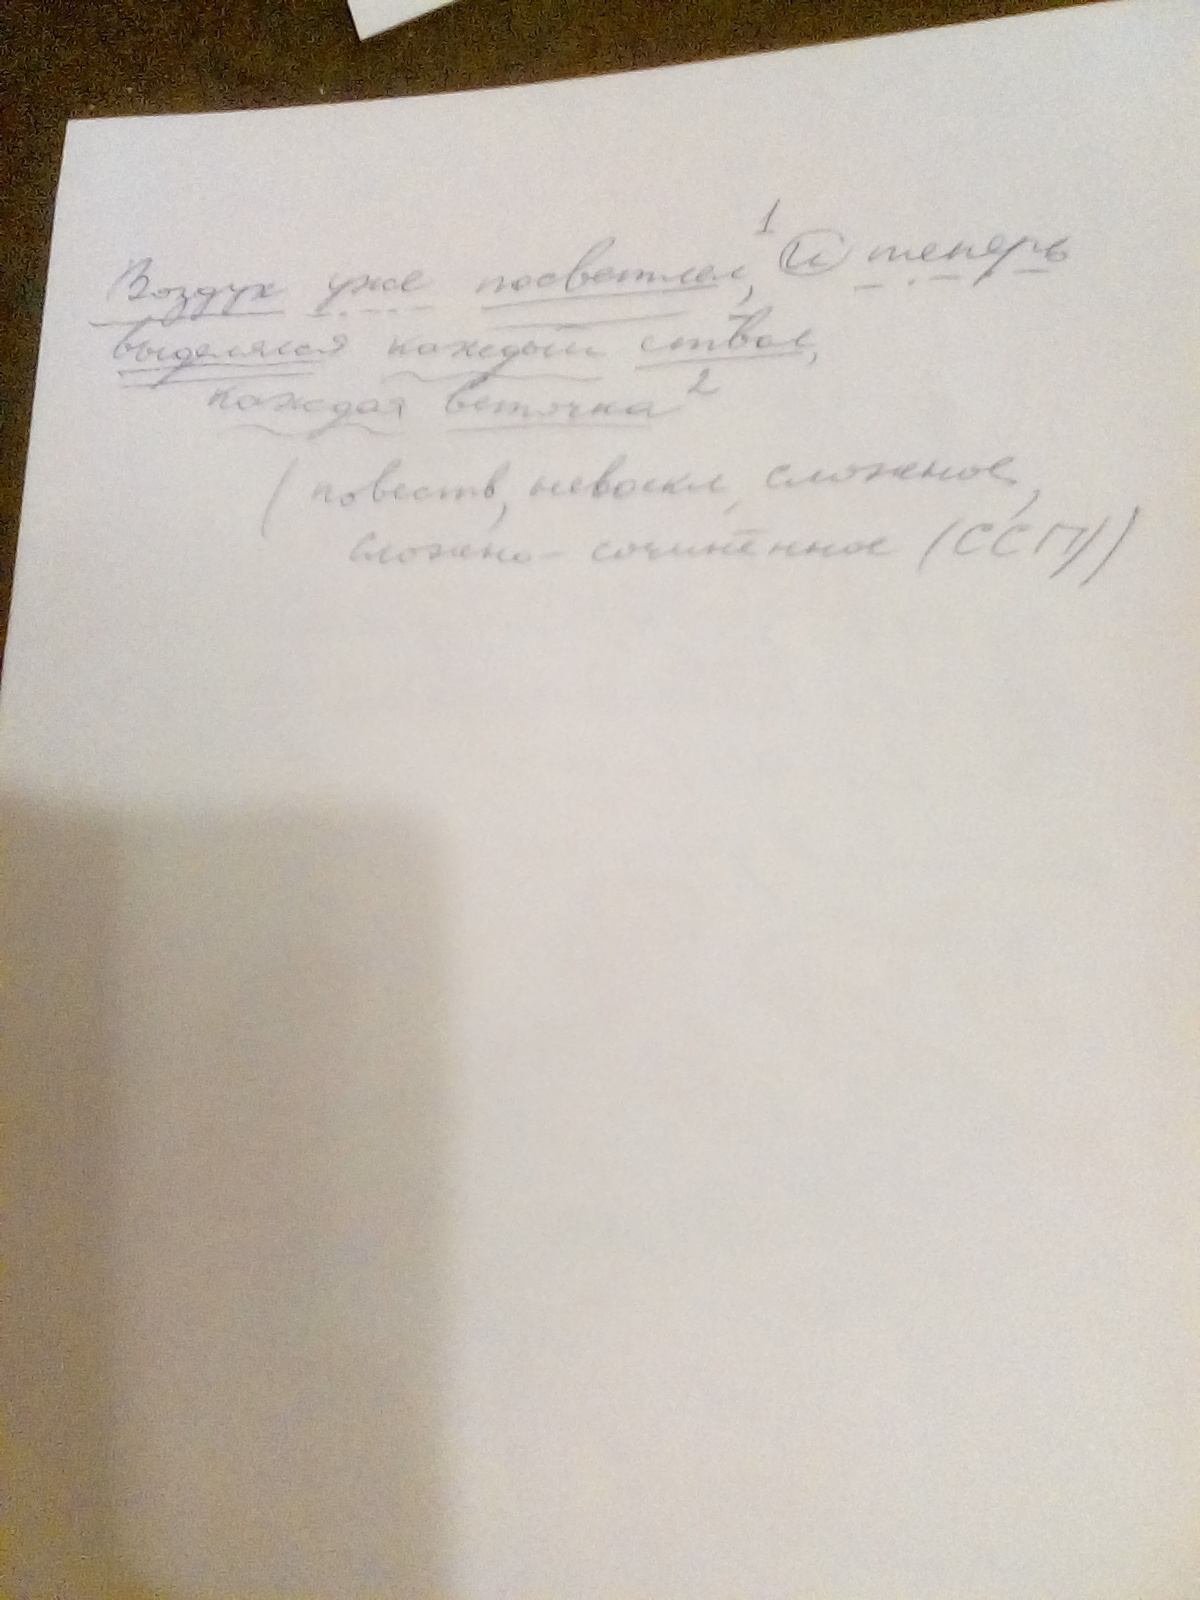 Воздух уже посветлел, 1 и теперь
выделялся каждый ствол,
каждая веточка 2
(повеств, невоскл, сложное,
сложно-сочинённое (ССП))